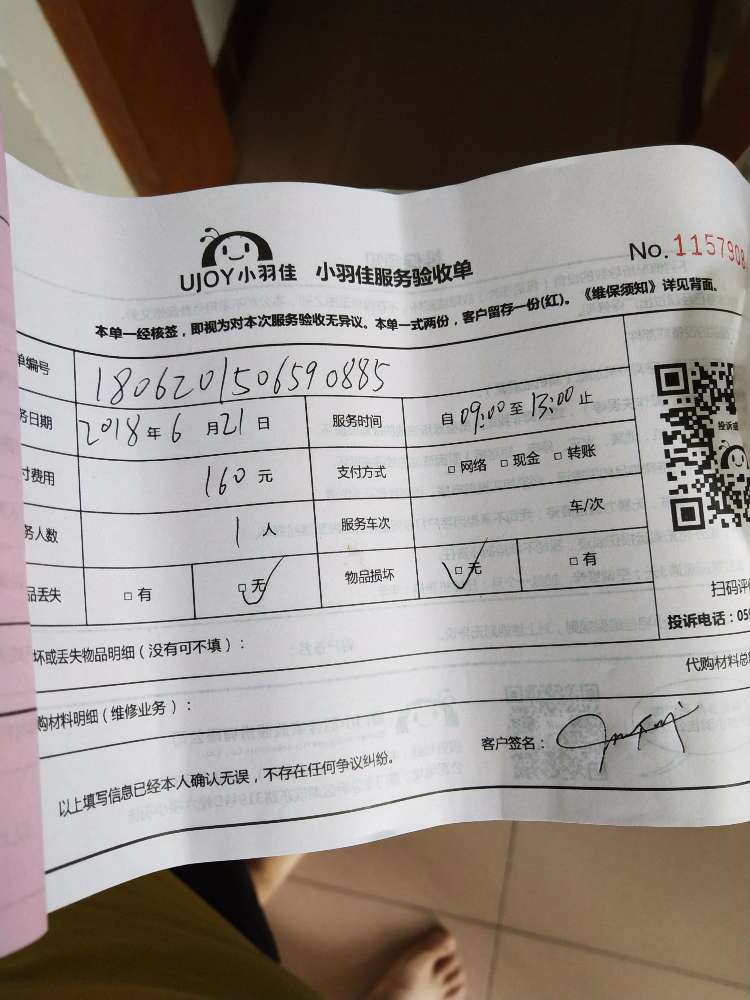 UJOY小羽佳 小羽佳服务验收单 No. 1157908
本单一经核签,即视为对本次服务验收无异议。本单一式两份,客户留存一份(红)。《维保须知》详见背面。
单编号 1806201506590885
务日期 2018年6月21日 服务时间 自09:00至13:00止
付费用 160元 支付方式 □网络 □现金 □转账
务人数 1人 服务车次 车/次
品丢失 □有 □无 物品损坏 □无 □有
投诉或
扫码评价
投诉电话:059
坏或丢失物品明细(没有可不填):
代购材料总
购材料明细(维修业务):
客户签名:
以上填写信息已经本人确认无误,不存在任何争议纠纷。